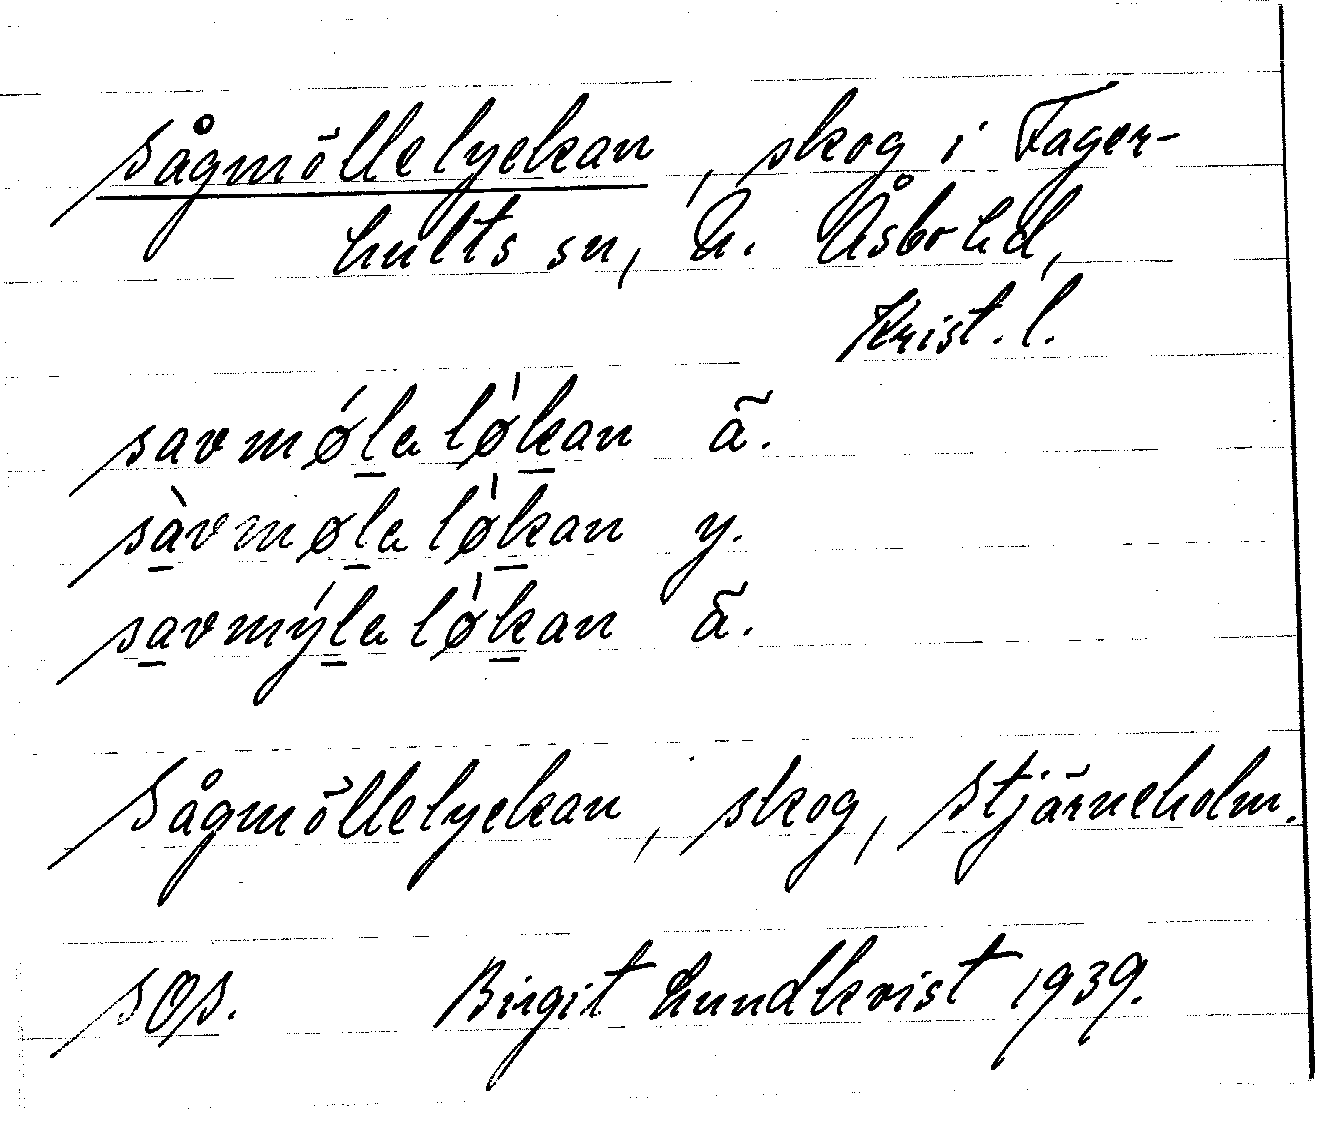 Sågmöllelyckan, skog i Fager-
hults sn, N. Åsbo hd,
Krist. l.
savmǿlalø̀kan ä.
sàvmølalø̀kan y.
savmýlalø̀kan ä.
Sågmöllelyckan, skog, Stjärneholm.
SOS. Birgit Lundkvist 1939.